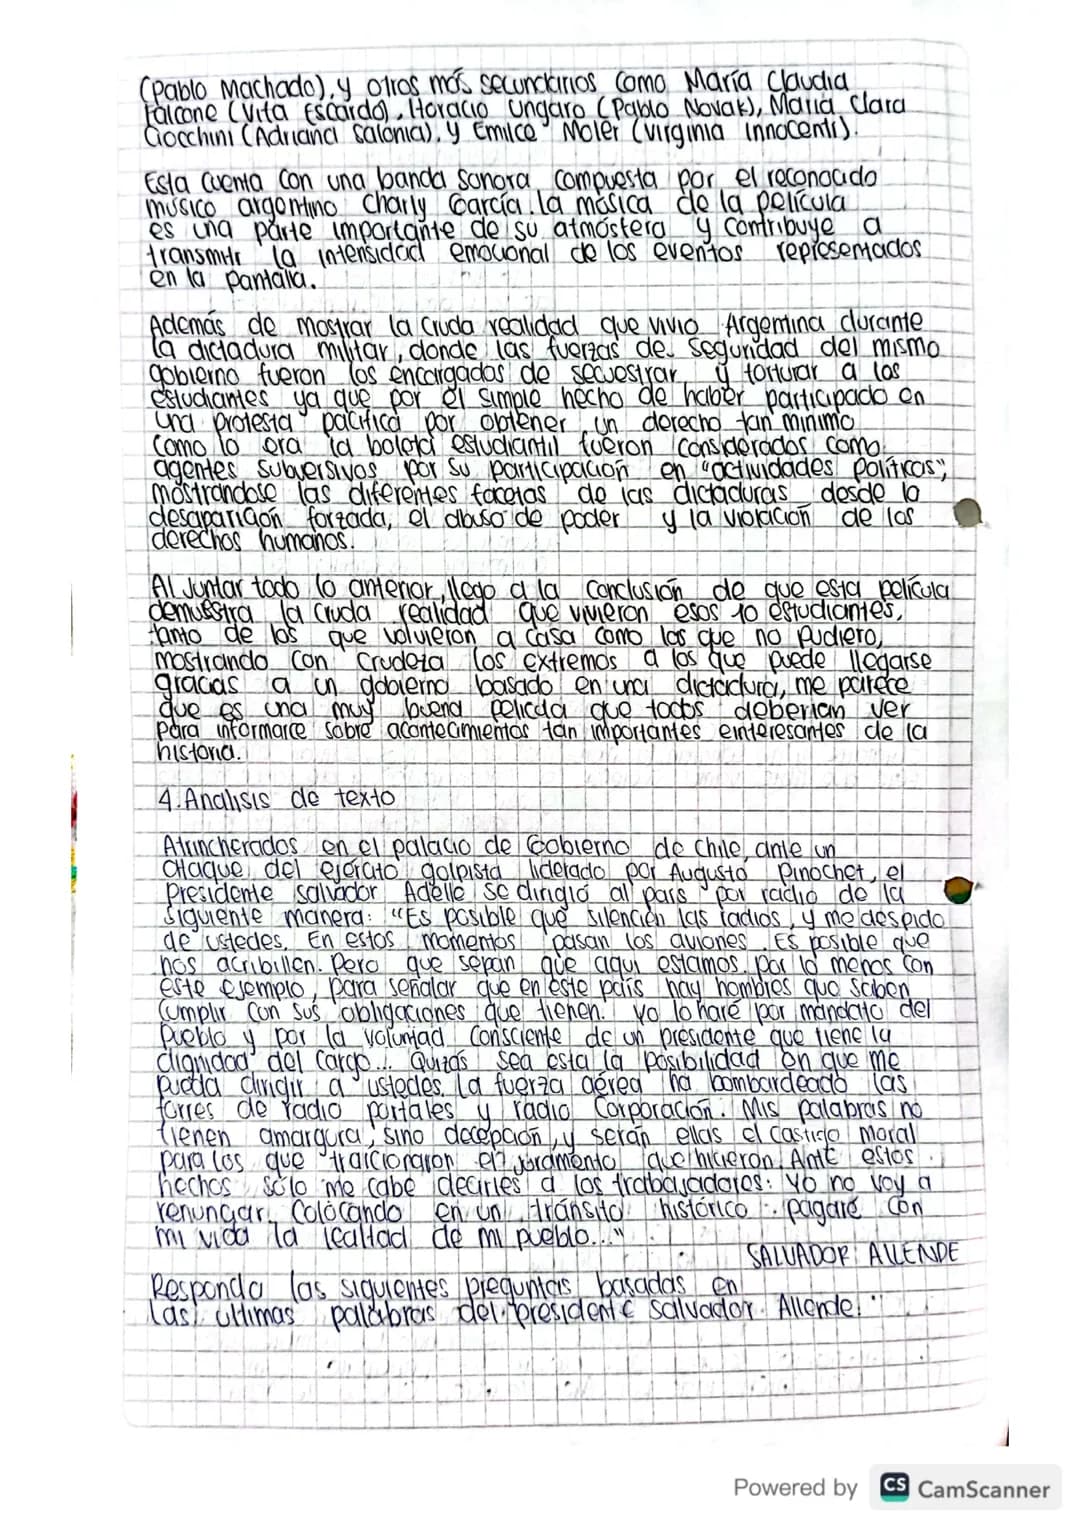 (Pablo Machado), y otros más secundarios como María Claudia
Falcone (Vita Escardo), Horacio Ungaro (Pablo Novak), María Clara
Ciocchini (Adriana Salonia), y Emilce Moler (Virginia Innocenti).
Esta cuenta con una banda sonora compuesta por el reconocido
músico argentino Charly García. la música de la película
es una parte importante de su atmósfera y contribuye a
transmitir la intensidad emocional de los eventos representados
en la pantalla.
Además de mostrar la cruda realidad que vivio Argentina durante
la dictadura militar, donde las fuerzas de seguridad del mismo
gobierno fueron los encargados de secuestrar y torturar a los
estudiantes ya que por el simple hecho de haber participado en
una protesta pacífica por obtener un derecho tan minimo
como lo era la boleta estudiantil fueron considerados como
agentes subversivos por su participación en "actividades políticas",
mostrandose las diferentes facetas de las dictaduras desde la
desaparición forzada, el abuso de poder y la violación de los
derechos humanos.
Al Juntar todo lo anterior, llego a la conclusión de que esta película
demuestra la cruda realidad que vivieron esos 10 estudiantes,
tanto de los que volvieron a casa como los que no pudiero,
mostrando con crudeza los extremos a los que puede llegarse
gracias a un gobierno basado en una dictadura, me parece
que es una muy buena pelicula que todos deberian ver
para informarce sobre acontecimientos tan importantes e interesantes de la
historia.
4. Analisis de texto
Atrincherados en el palacio de Gobierno de chile, ante un
ataque del ejército golpista liderado por Augusto Pinochet, el
presidente salvador Adelle se dirigió al país por radio de la
siguiente manera: "Es posible que silencien las radios, y me despido
de ustedes. En estos momentos pasan los aviones. Es posible que
nos acribillen. Pero que sepan que aqui estamos, por lo menos con
este ejemplo, para señalar que en este país hay hombres que saben
cumplir con sus obligaciones que tienen. Yo lo haré por mandato del
pueblo y por la voluntad consciente de un presidente que tiene la
dignidad del cargo... Quizás sea esta la posibilidad en que me
pueda dirigir a ustedes. La fuerza aérea ha bombardeado las
torres de radio portales y radio Corporación. Mis palabras no
tienen amargura, sino decepción, y serán ellas el castigo moral
para los que traicionaron el juramento que hicieron. Ante estos
hechos, sólo me cabe decirles a los trabajadores: Yo no voy a
renunciar. Colocando en un tránsito histórico pagaré con
mi vida la lealtad de mi pueblo..."
SALVADOR ALLENDE
Responda las siguientes preguntas basadas en
Las ultimas palabras del presidente Salvador Allende.
Powered by CS CamScanner